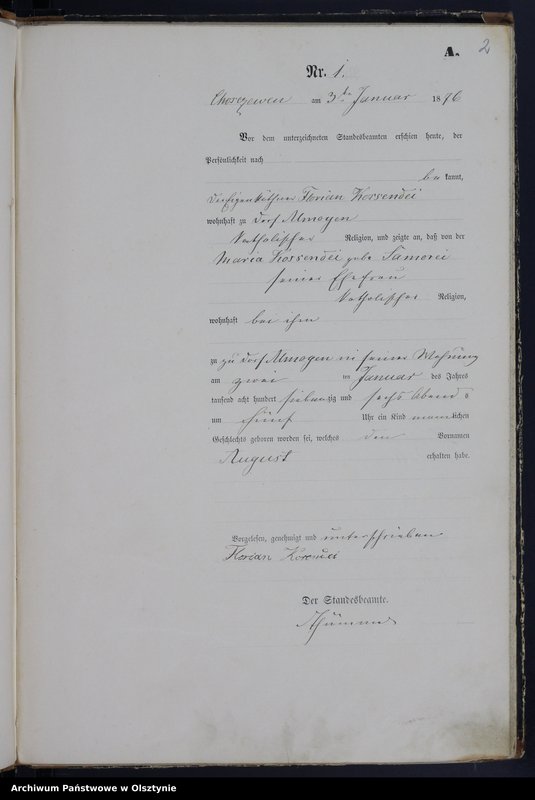 A. 2
Nr. 1.
am 3ten Januar 1876
Vor dem unterzeichneten Standesbeamten erschien heute, der
Persönlichkeit nach
be kannt,
der Eigenkäthner Florian Korsendei
wohnhaft zu Dorf Almoyen
katholischer Religion, und zeigte an, daß von der
Maria Korsendei geb. Samorei
seiner Ehefrau
katholischer Religion,
wohnhaft bei ihm
zu zu Dorf Almoyen in seiner Wohnung
am zwei ten Januar des Jahres
tausend acht hundert siebenzig und sechs Abends
um fünf Uhr ein Kind männlichen
Geschlechts geboren worden sei, welches den Vornamen
August erhalten habe.
Vorgelesen, genehmigt und unterschrieben
Florian
Der Standesbeamte.
Archiwum Państwowe w Olsztynie